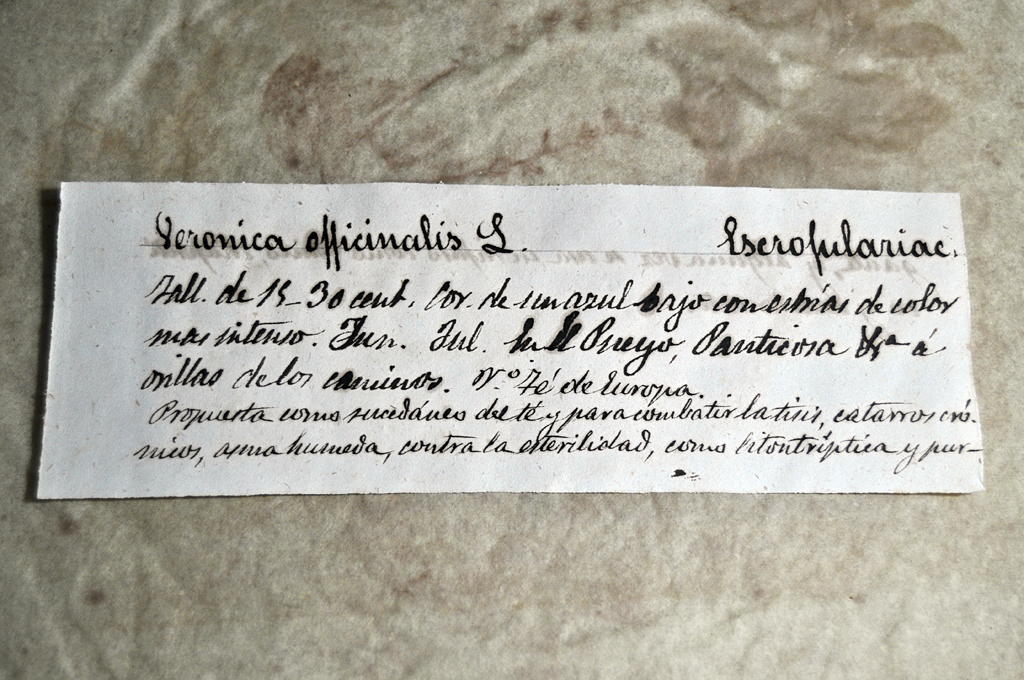 Veronica officinalis L. Escrofulariac.
Tall. de 15 30 cent. Cor. de un azul bajo con estrias de color
mas intenso. Jun. Jul. En El Pueyo, Panticosa &ª á
orillas de los caminos. N.º Té de Europa.
Propuesta como sucedáneo del té y para combatir la tisis, catarros cró-
nicos, asma humeda, contra la esterilidad, como litontríptica y pur-